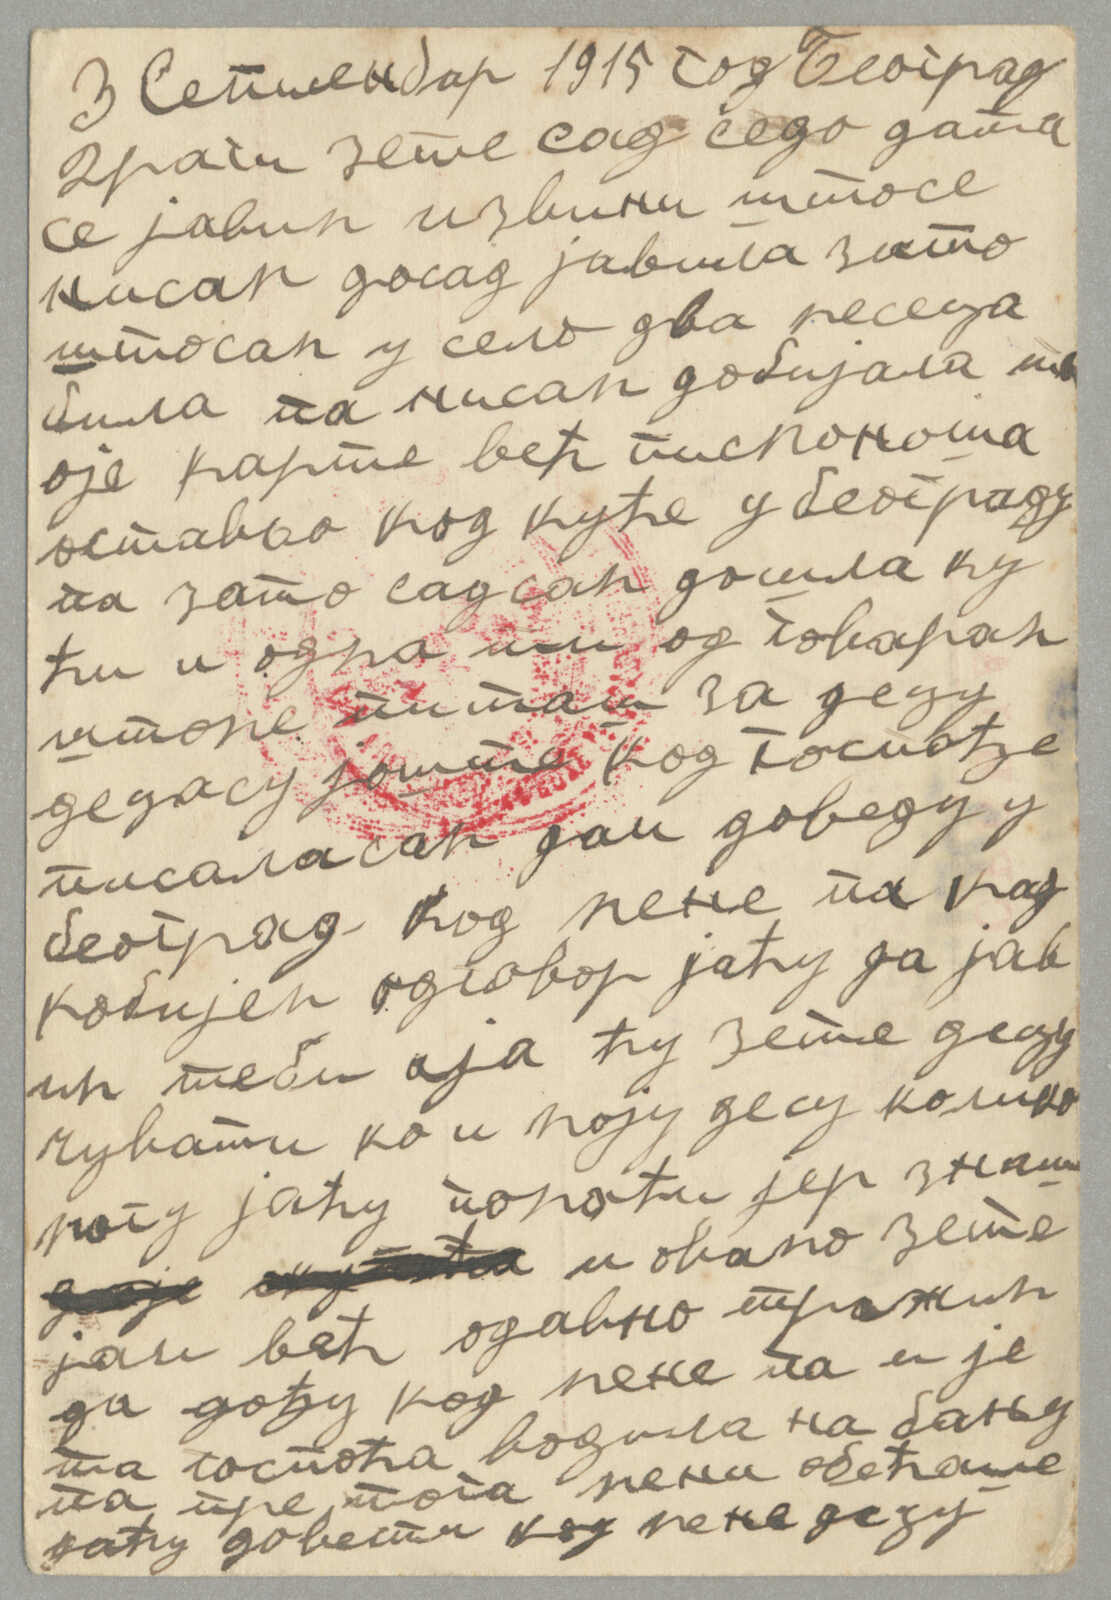 3 Септиенбар 1915 год Београд
Драги зете сад седо дати
се јавин извини штосе
нисан досад јавила зато
штосан у село два месеца
била па нисан добијала тв
оје карте већ писмоноша
оставьо код куће у београду
па зато садсан дошла ку
ћи и одма ти од товаран
штоме питаш за децу
децасу јоште код госпође
писаласан дай доведу у
београд код мене па кад
кобијен одговор јаћу да јав
ин теби аја ћу зете децу
чувати ко и моју десу колико
могу јаћу помоћи јер знаш
и овако зете
јаи већ одавно тражин
да дођу код мене па и је
та госпоћа водила на бању
па пре тога мени обећаше
даћу довести код мене децу